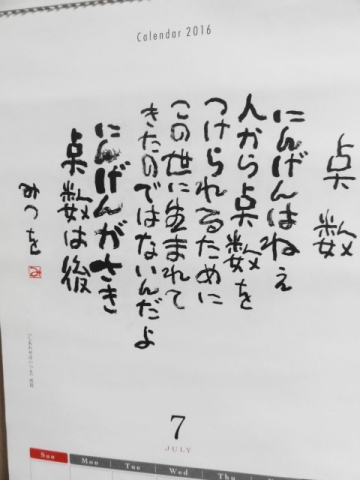 Calendar 2016
点数
にんげんはねぇ
人から点数を
つけられるために
この世に生まれて
きたのではないんだよ
にんげんがさき
点数は後
みつを
7
JULY
Sun Mon Tue Wed Thu